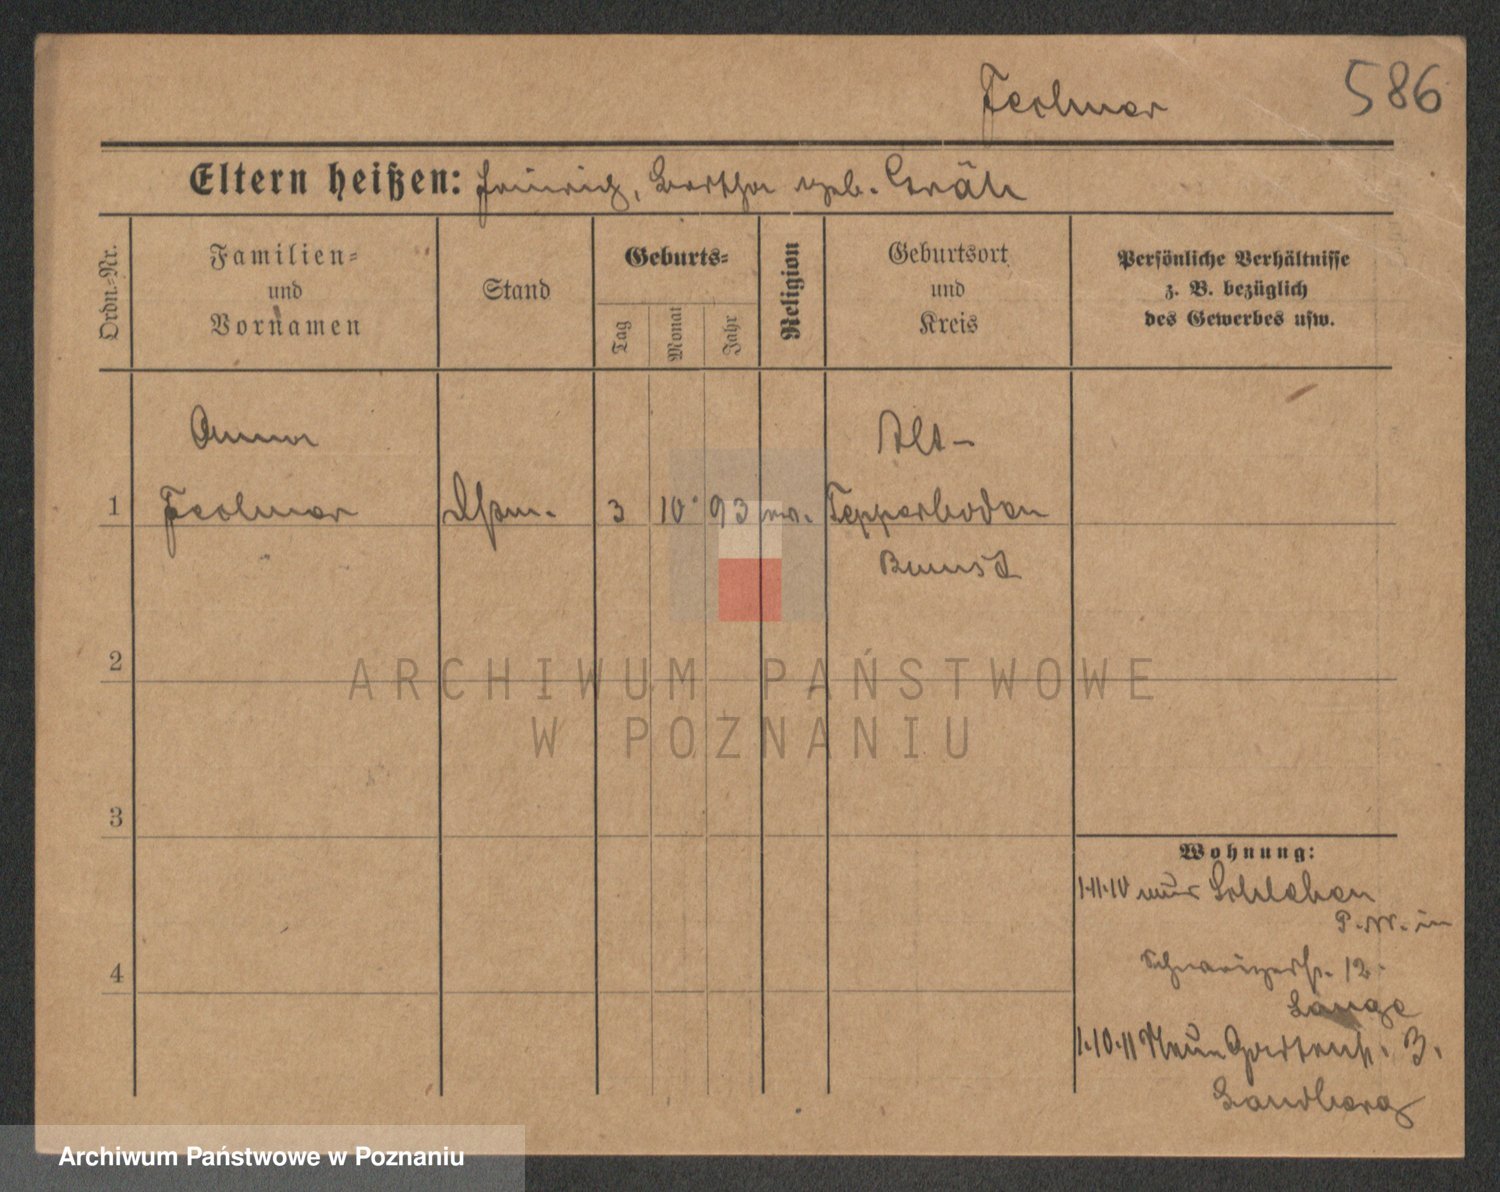 Fechner
586
Eltern heißen: Heinrich, Bertha geb. Gräh
Ordn.-Nr.
Familien-
und
Vornamen
Stand
Geburts-
Tag
Monat
Jahr
Religion
Geburtsort
und
Kreis
Persönliche Verhältnisse
z. B. bezüglich
des Gewerbes usw.
Anna
Alt-
1
3 10. 93
Tepperbuden
2
ARCHIWUM PAŃSTWOWE
W POZNANIU
3
Wohnung:
1.11.10
P. W. in
4
12.
Lange
1.10.11 Neue Gartenstr. 3.
Sandberg
Archiwum Państwowe w Poznaniu